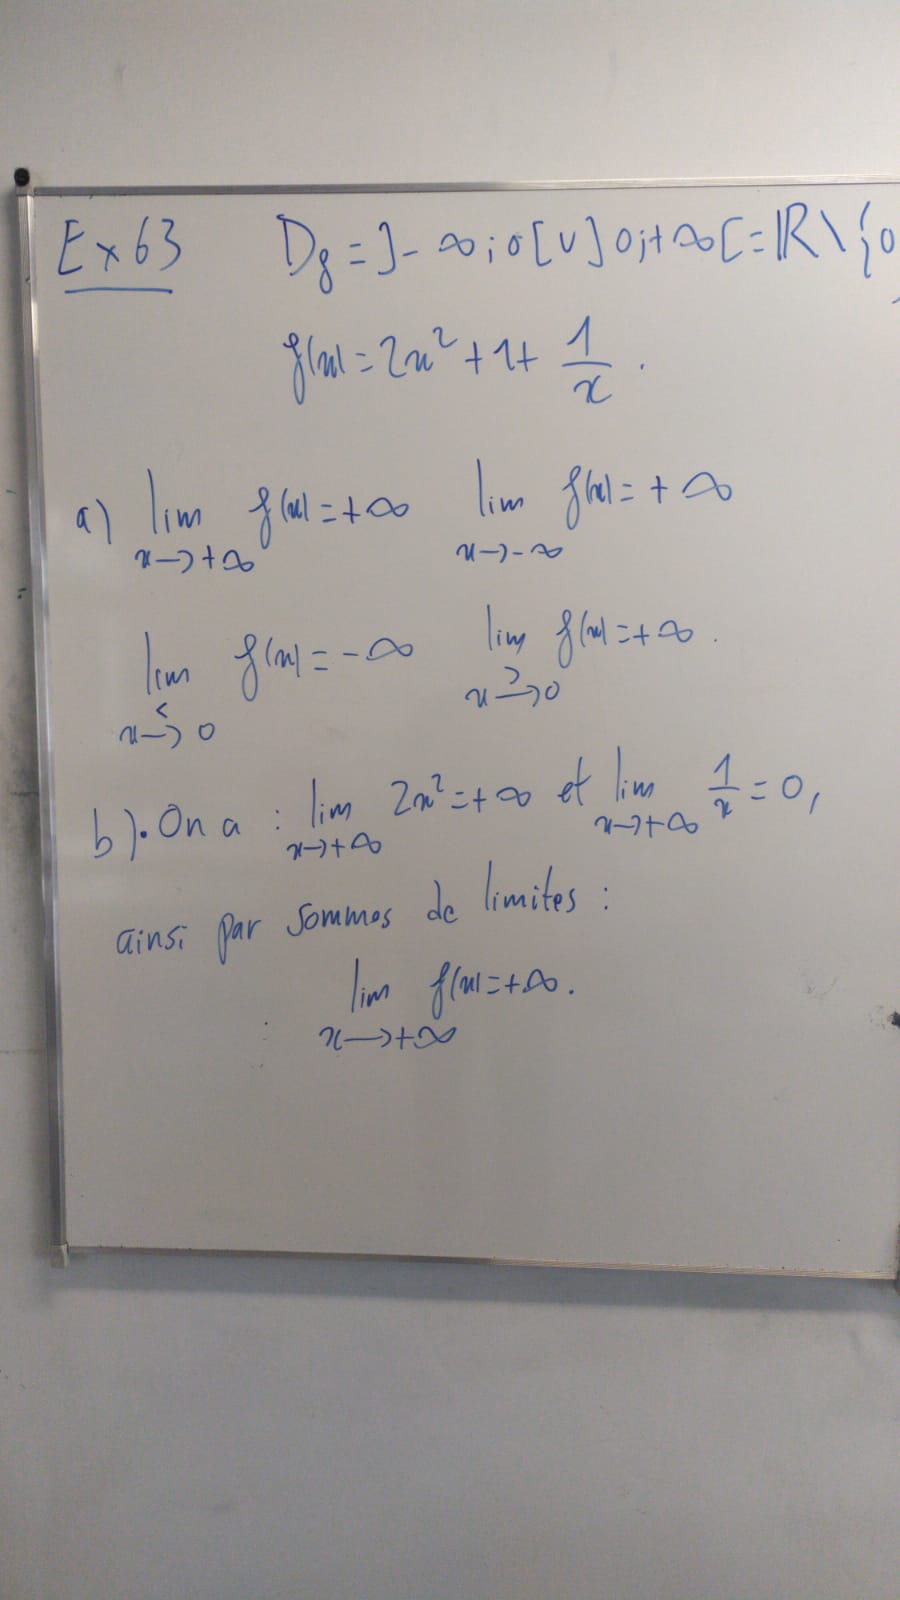 Ex 63 Df = ]-∞; 0[ ∪ ]0; +∞[ = ℝ \ {0
f(x) = 2x² + 1 + 1/x.
a) lim x→+∞ f(x) = +∞ lim x→-∞ f(x) = +∞
lim x→0 < f(x) = -∞ lim x→0 > f(x) = +∞.
b) • On a : lim x→+∞ 2x² = +∞ et lim x→+∞ 1/x = 0,
ainsi par sommes de limites :
lim x→+∞ f(x) = +∞.